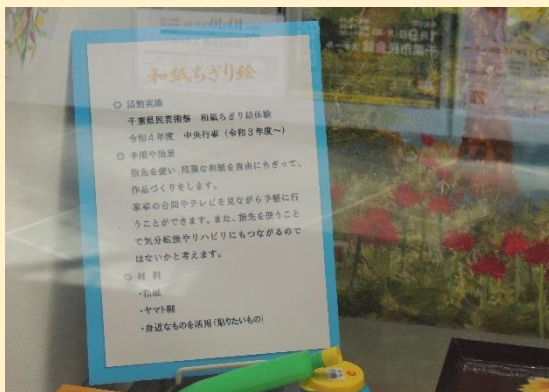 和紙ちぎり絵
◎ 活動実績
千葉県民芸術祭 和紙ちぎり絵体験
令和4年度 中央行事(令和3年度~)
◎ 手順や効果
指先を使い、綺麗な和紙を自由にちぎって、
作品づくりをします。
家事の合間やテレビを見ながら手軽に行
うことができます。また、指先を使うこと
で気分転換やリハビリにもつながるので
はないかと考えます。
◎ 材料
・和紙
・ヤマト糊
・身近なものを活用(貼りたいもの)